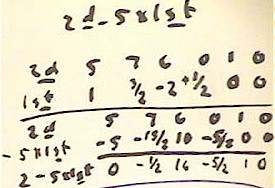 2d - 5x1st
2d 5 7 6 0 1 0
1st 1 3/2 -2 +1/2 0 0
2d 5 7 6 0 1 0
-5x1st -5 -15/2 10 -5/2 0 0
2-5x1st 0 -1/2 16 -5/2 1 0